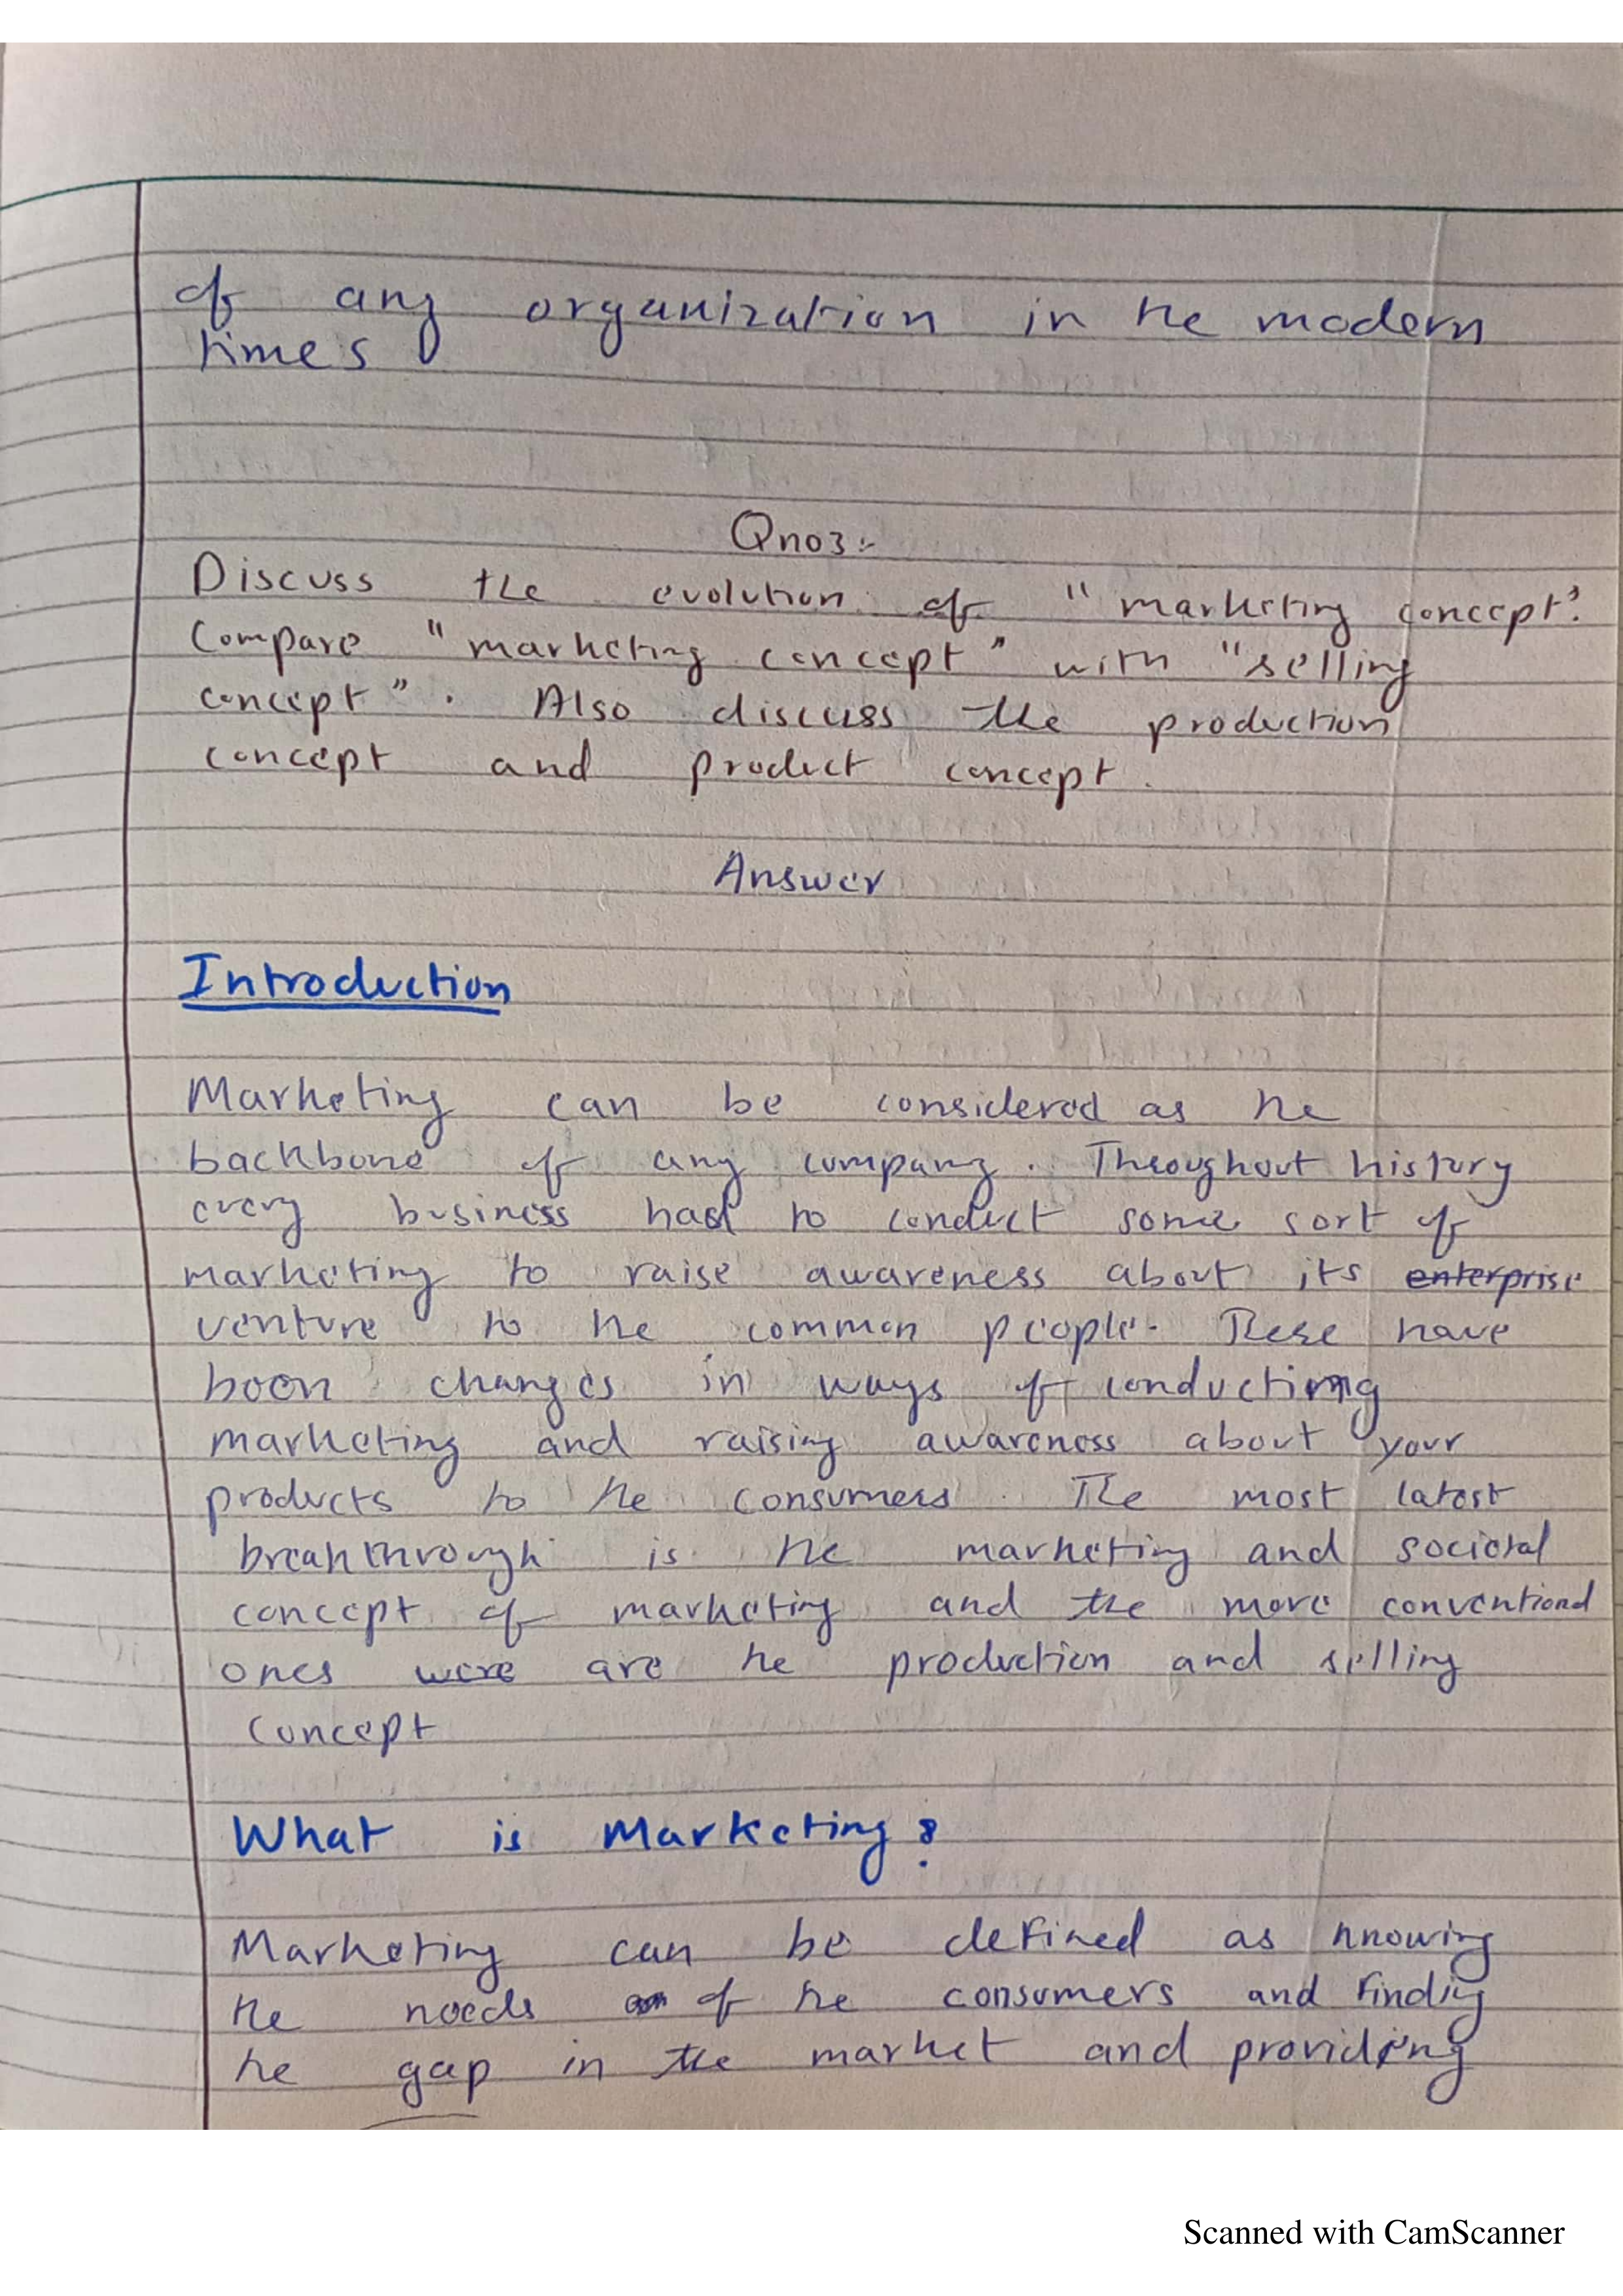 of any organization in the modern
times
Qno3:-
Discuss the evolution of "marketing concept".
Compare "marketing concept" with "selling
concept". Also discuss the production
concept and product concept.
Answer
Introduction
Marketing can be considered as the
backbone of any company. Throughout history
every business had to conduct some sort of
marketing to raise awareness about its enterprise
venture to the common people. These have
been changes in ways of conducting
marketing and raising awareness about your
products to the consumers. The most latest
breakthrough is the marketing and societal
concept of marketing and the more conventional
ones were are the production and selling
concept
What is Marketing?
Marketing can be defined as knowing
the needs of the consumers and finding
the gap in the market and providing
Scanned with CamScanner